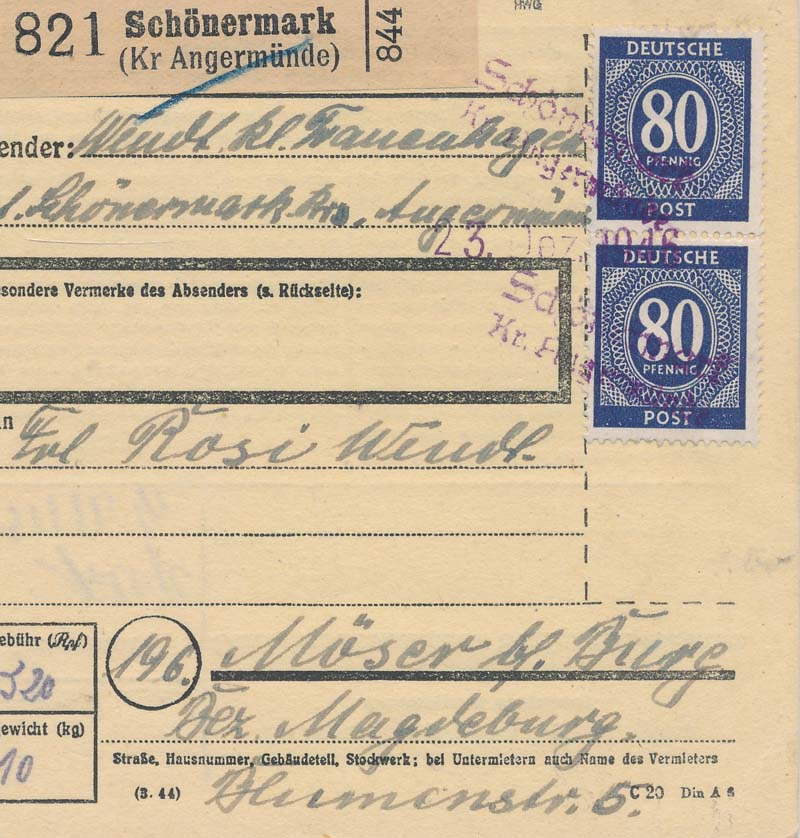 HWG
821 Schönermark
(Kr Angermünde)
844
ender: Wendt. Kl. Frauenhagen
Schönermark Krs. Angermün
23. Dez. 1946
Schönermark
Kr. Angermünde
DEUTSCHE
80
PFENNIG
POST
Schönermark
Kr. Angermünde
DEUTSCHE
80
PFENNIG
POST
esondere Vermerke des Absenders (s. Rückseite):
n
Frl. Rosi Wendt.
ebühr (Rpf)
320
ewicht (kg)
10
196. Möser b/. Burg
Bez. Magdeburg.
Straße, Hausnummer, Gebäudeteil, Stockwerk; bei Untermietern auch Name des Vermieters
(3. 44) Blumenstr. 5. C 20 Din A 5